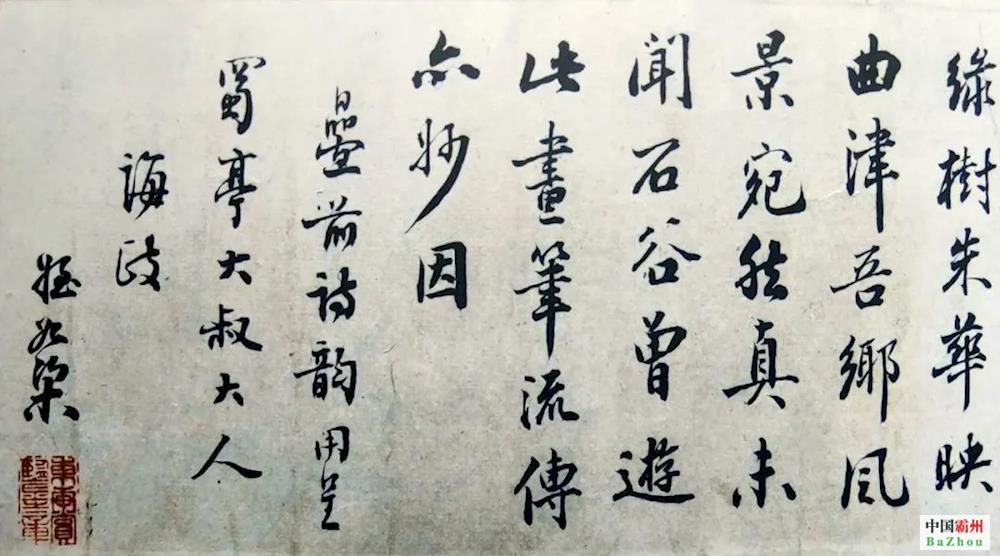 綠樹朱華映
曲津吾鄉風
景宛然真未
聞石谷曾遊
此畫筆流傳
亦妙因
疊前詩韻用呈
蜀亭大叔大人
誨政
姪如榘
中国霸州
BaZhou